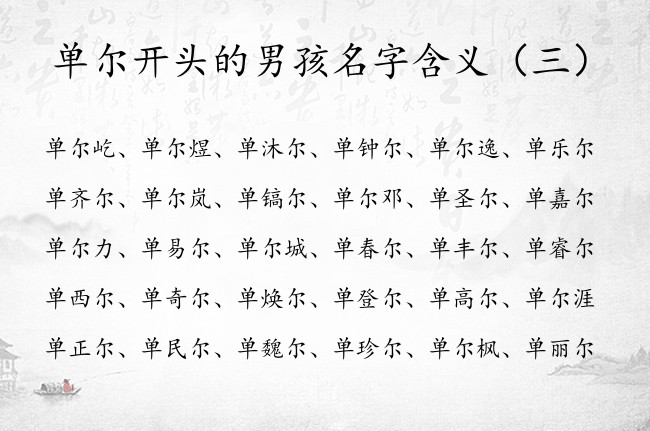 单尔开头的男孩名字含义（三）
单尔屹、单尔煜、单沐尔、单钟尔、单尔逸、单乐尔
单齐尔、单尔岚、单镐尔、单尔邓、单圣尔、单嘉尔
单尔力、单易尔、单尔城、单春尔、单丰尔、单睿尔
单西尔、单奇尔、单焕尔、单登尔、单高尔、单尔涯
单正尔、单民尔、单魏尔、单珍尔、单尔枫、单丽尔